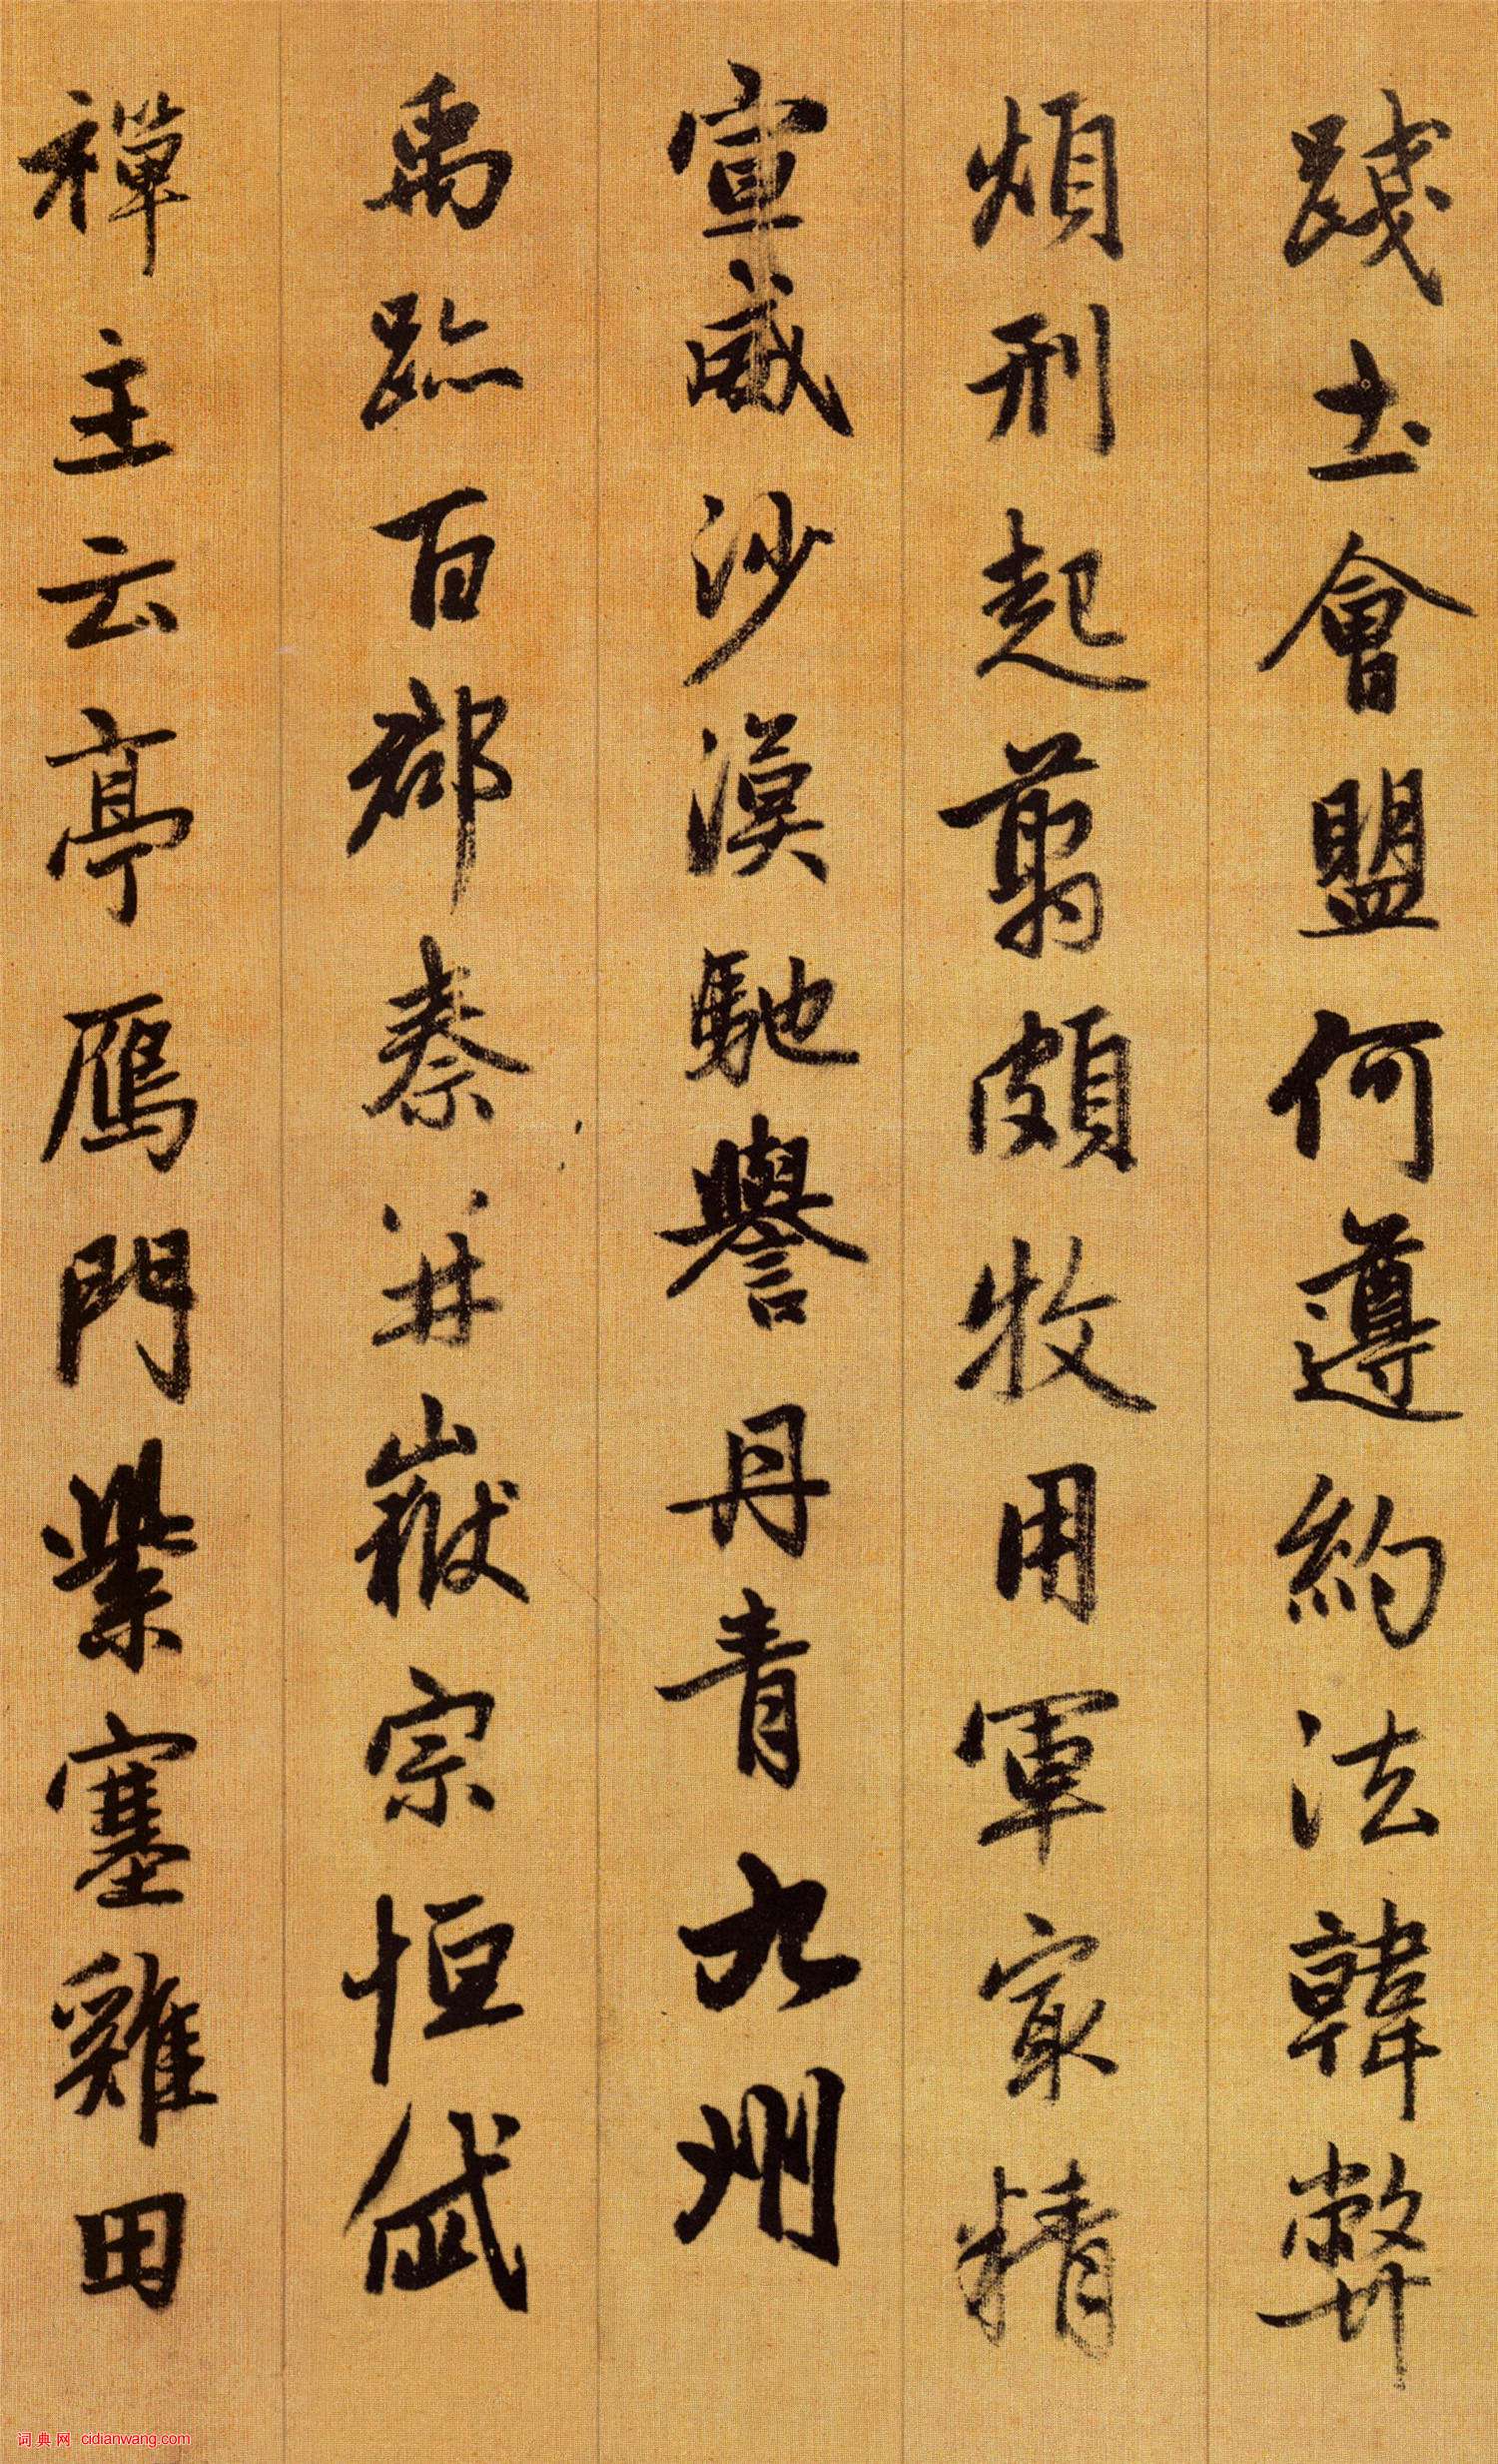 踐土會盟何遵約法韓弊
煩刑起翦頗牧用軍寂精
宣威沙漠馳譽丹青九州
禹跡百郡秦并嶽宗恒岱
禪主云亭鴈門紫塞雞田
词典网 cidianwang.com